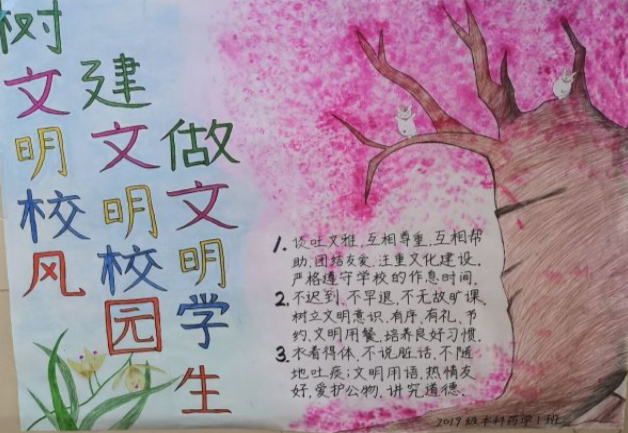 树文明校风
建文明校园
做文明学生
1. 谈吐文雅,互相尊重,互相帮
助,团结友爱,注重文化建设,
严格遵守学校的作息时间,
2. 不迟到,不早退,不无故旷课,
树立文明意识,有序,有礼,节
约,文明用餐,培养良好习惯.
3. 衣着得体,不说脏话,不随
地吐痰;文明用语,热情友
好,爱护公物,讲究道德.
2019级本科药学1班